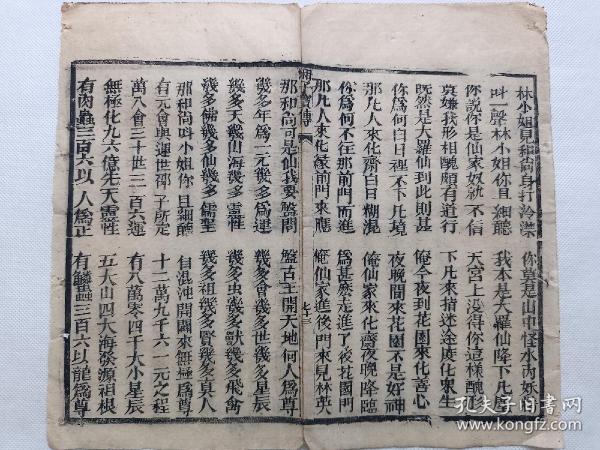 林小姐見和尚身打冷㦗 你莫是山中怪水內妖
叫一聲林小姐你且細聽 我本是大羅仙降下凡
你說你是仙家奴就不信 天宮上沒得你這樣醜
莫嫌我形相醜頗有道行 下凡來指迷途度化衆生
既然是大羅仙到此則甚 俺今夜到花園來化善心
你爲何白日裡不下凡境 夜晚間來花園不是好神
那凡人來化齋白日糊混 俺仙家來化齋夜晚降臨
你爲何不在那前門而進 爲甚麽走進了後花園門
那凡人來化緣前門來應 俺仙家進後門來見林英
寶傳
那和尚可是仙我要盤問 盤古王開天地何人爲尊
幾多年爲一元幾多爲運 幾多會幾多世幾多星辰
幾多天幾山海幾多靈性 幾多虫幾多獸幾多飛禽
幾多佛幾多仙幾多儒聖 幾多祖幾多賢幾多真人
那和尚叫小姐你且細聽 自混沌開闢來無極爲尊
有元會與運世邵子所定 十二萬九千六一元之程
萬八會三十世三百六運 有八萬零四千大小星辰
無極化九六億先天靈性 五大山四大海發源祖根
有肉蟲三百六以人爲正 有鱗蟲三百六以龍爲尊
孔夫子旧书网
www.kongfz.com